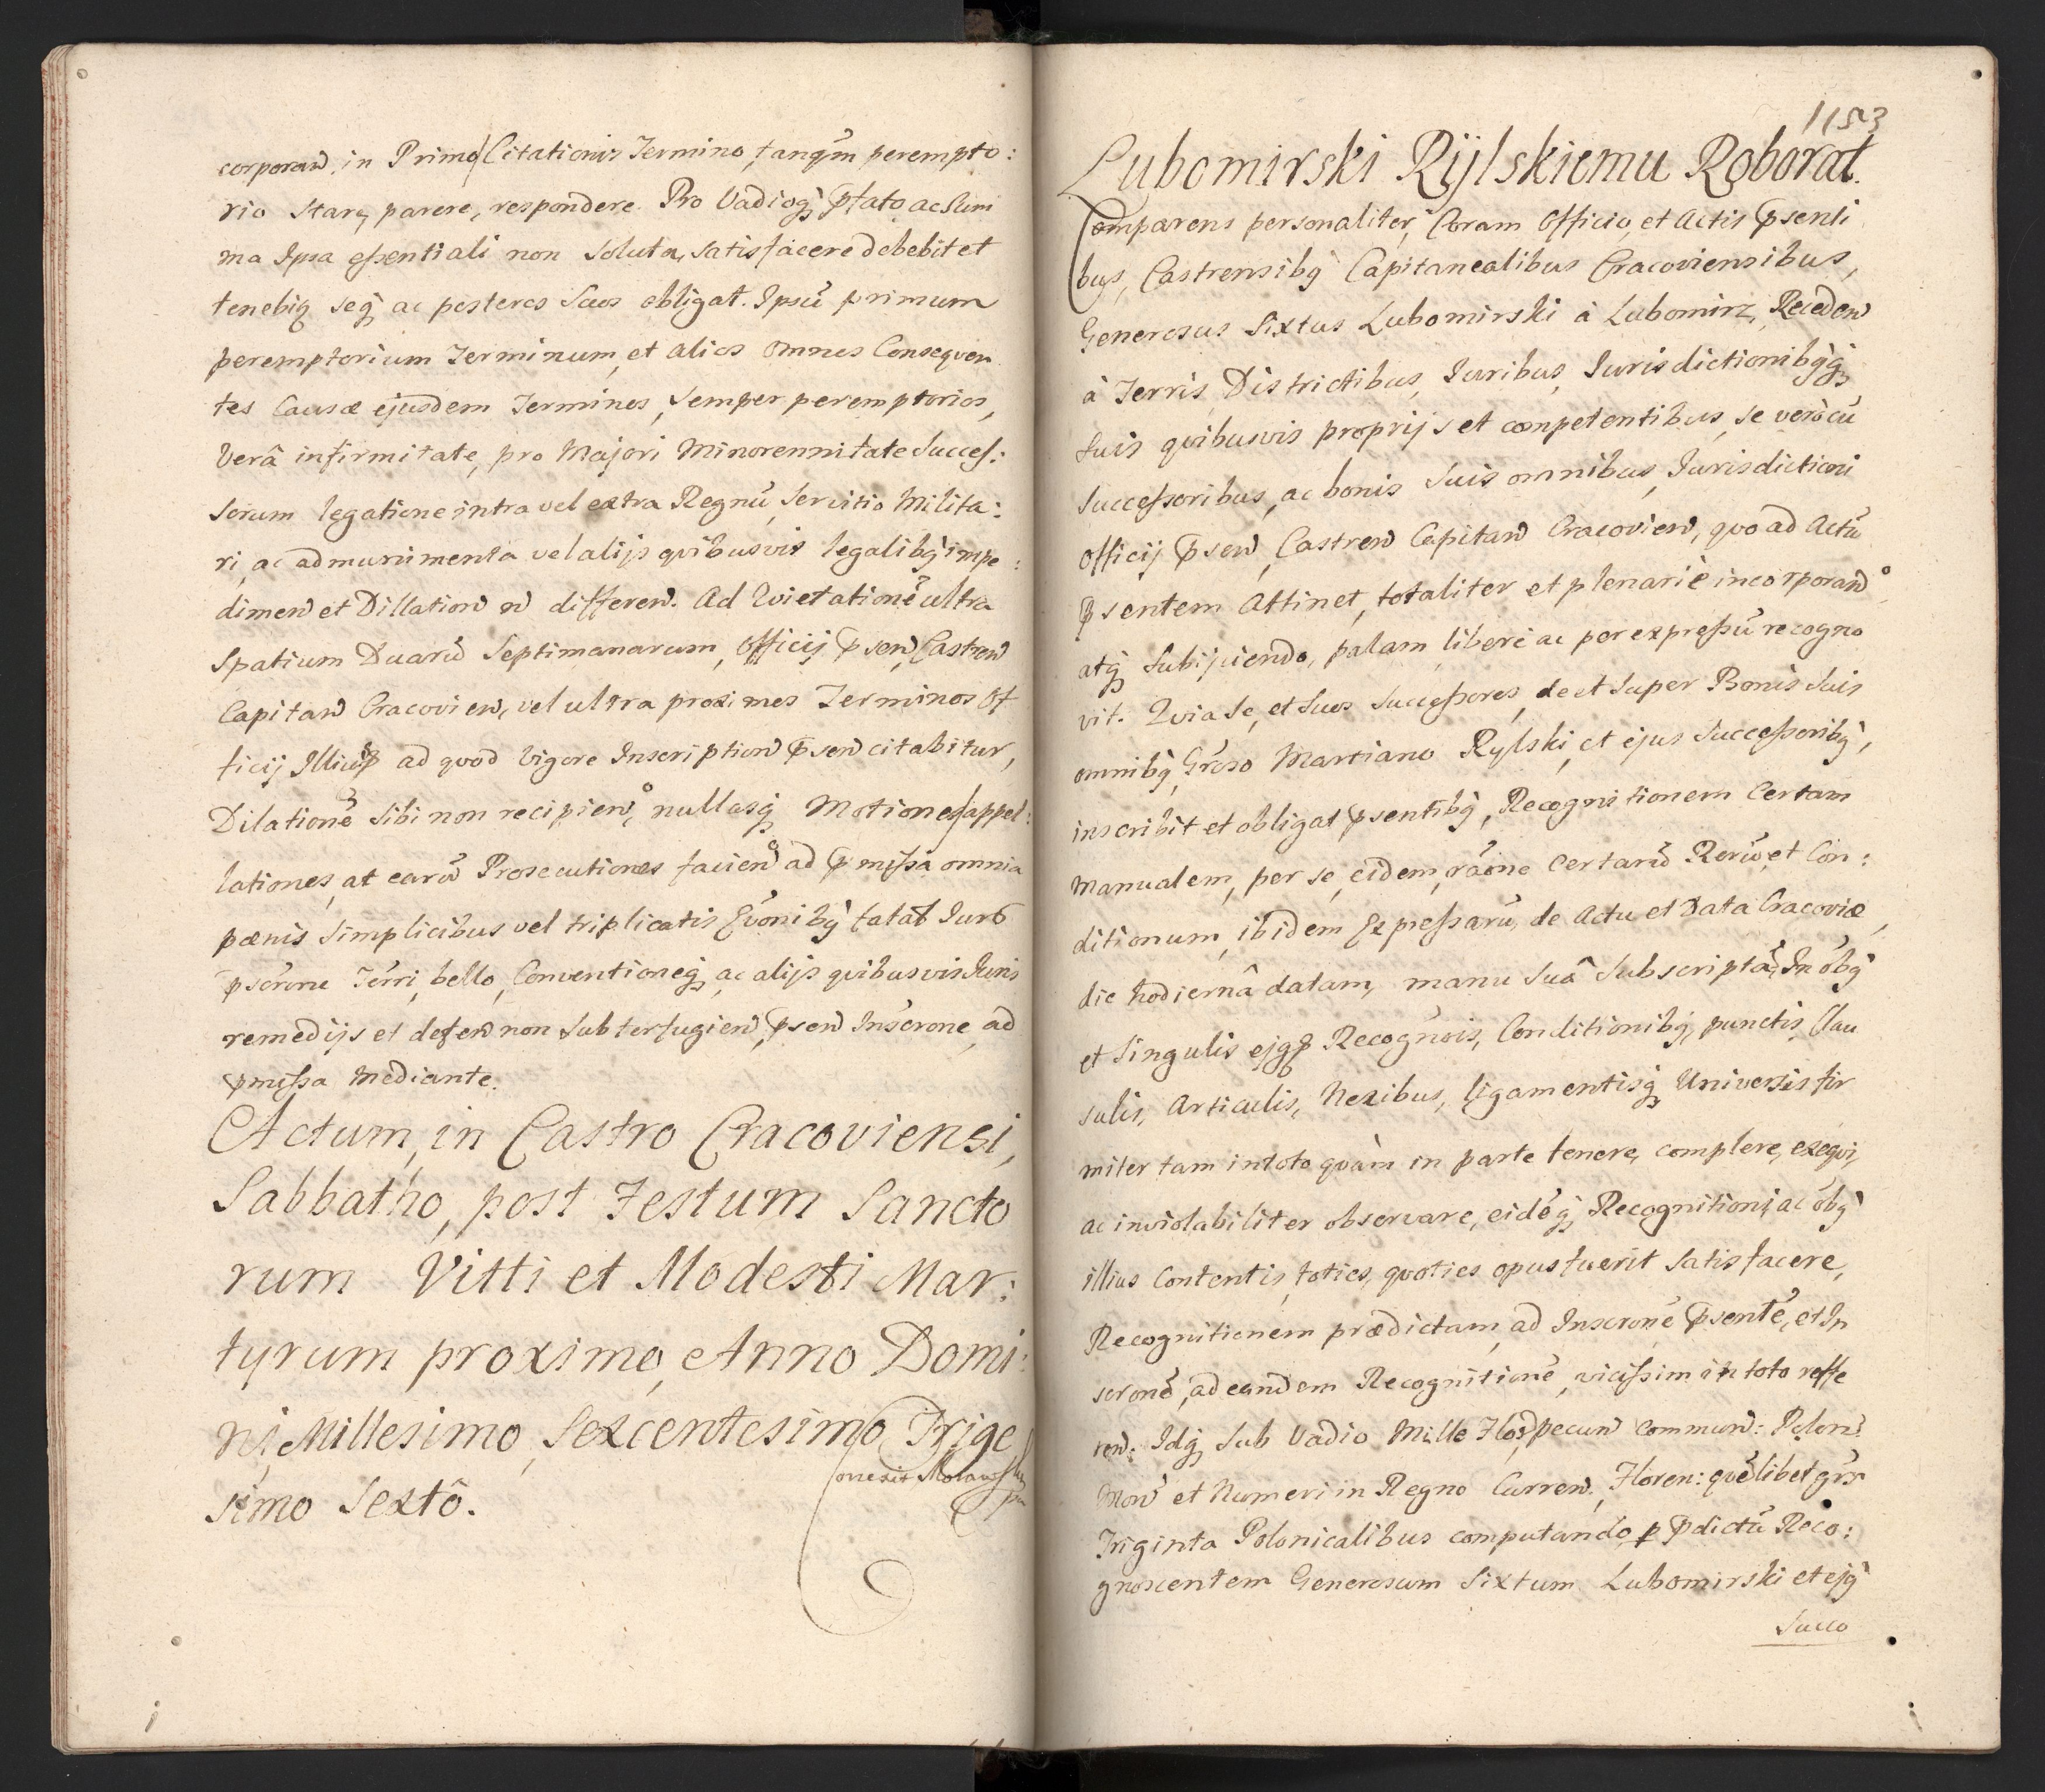 corporand. in Primo Citationis Termino, tanq̃m perempto:
rio stare, parere, respondere. Pro Vadioq; p̃tato ac Sum
ma Ipsa essentiali non soluta, satisfacere debebit et
tenebiṯ seq; ac posteros suos obligat. Ipsũ primum
peremptorium Terminum, et alios omnes Consequen
tes Causæ ejusdem Terminos, semper peremptorios,
Verâ infirmitate, pro Majori Minorennitate Succes:
sorum legatione intra vel extra Regnũ, servitio Milita:
ri, ac ad munimenta vel alijs quibusvis legalibq impe:
dimen̄ et Dillation̄ n̄ differen̄. Ad Quietationẽ ultra
Spatium Duarũ Septimanarum, Officij p̃sen̄, Castren̄
Capitan̄ Cracovien̄, vel ultra proximos Terminos Of
ficij Illius ad quod Vigore Inscription̄ p̃sen̄ citabitur,
Dilationẽ sibi non recipien̄, nullasq; Motiones appel:
lationes, at earũ Prosecutiones facien̄ ad p̃missa omnia
pœnis simplicibus vel triplicatis
p̃scrõne Terri, bello, Conventioneq; ac alijs quibusvis Juris
remedijs et defen̄ non subterfugien̄, p̃sen̄ Inscrõne ad
p̃missa Mediante.
Actum, in Castro Cracoviensi,
Sabbatho, post Festum Sancto
rum Vitti et Modesti Mar:
tyrum proximo, Anno Domi:
ni, Millesimo, Sexcentesimo Trige
simo Sextô.
1153
Lubomirski Rÿlskiemu Roborat.
Comparens personaliter, Coram Officio, et Actis p̃senti
bus, Castrensibq Capitanealibus Cracoviensibus,
Generosus Sixtus Lubomirski à Lubomirz, Receden̄
à Terris, Districtibus, Juribus, Jurisdictionibqq;
Suis quibusvis proprijs et competentibus, se verò cũ
Successoribus, ac bonis suis omnibus, Jurisdictioni
officij p̃sen̄, Castren̄ Capitan̄ Cracovien̄, quo ad Actũ
p̃sentem Attinet, totaliter et plenariè incorporan̄º
atq; subijciendo, palam liberè ac per expressũ recogno
vit. Quia se, et suos Successores, de et super Bonis suis
omnibq, Grõso Martiano Rylski, et ejus Successoribq,
inscribit et obligat p̃sentibq, Recognitionem Certam
Manualem, per se, eidem, raõne Certarũ Rerũ, et Con:
ditionum, ibidem Expressarũ, de Actu et Data Cracoviæ,
die hodiernâ datam, manu suâ subscriptã, In õbq
et singulis ejq Recognõis, Conditionibq, punctis, Clau
sulis, Articulis, Nexibus, ligamentisq; Universis fir
miter tam in toto quàm in parte tenere, complere, exequi,
ac inviolabiliter observare, eidẽq; Recognitioni, ac õbq
illius Contentis, toties, quoties opus fuerit satisfacere,
Recognitionem prædictam, ad Inscrõnẽ p̃sentẽ, et In
scrõnẽ, ad eandem Recognitionẽ, vicissim in toto reffe
ren̄. Idq; sub Vadio Mille Flor̃ pecun̄ commun̄: Polon:
Mon̄ et Numeri in Regno Curren̄. Floren: quẽlibet grõs
Triginta Polonicalibus computando, p p̃dictũ Reco:
gnoscentem Generosum Sixtum Lubomirski et ejq
Succo